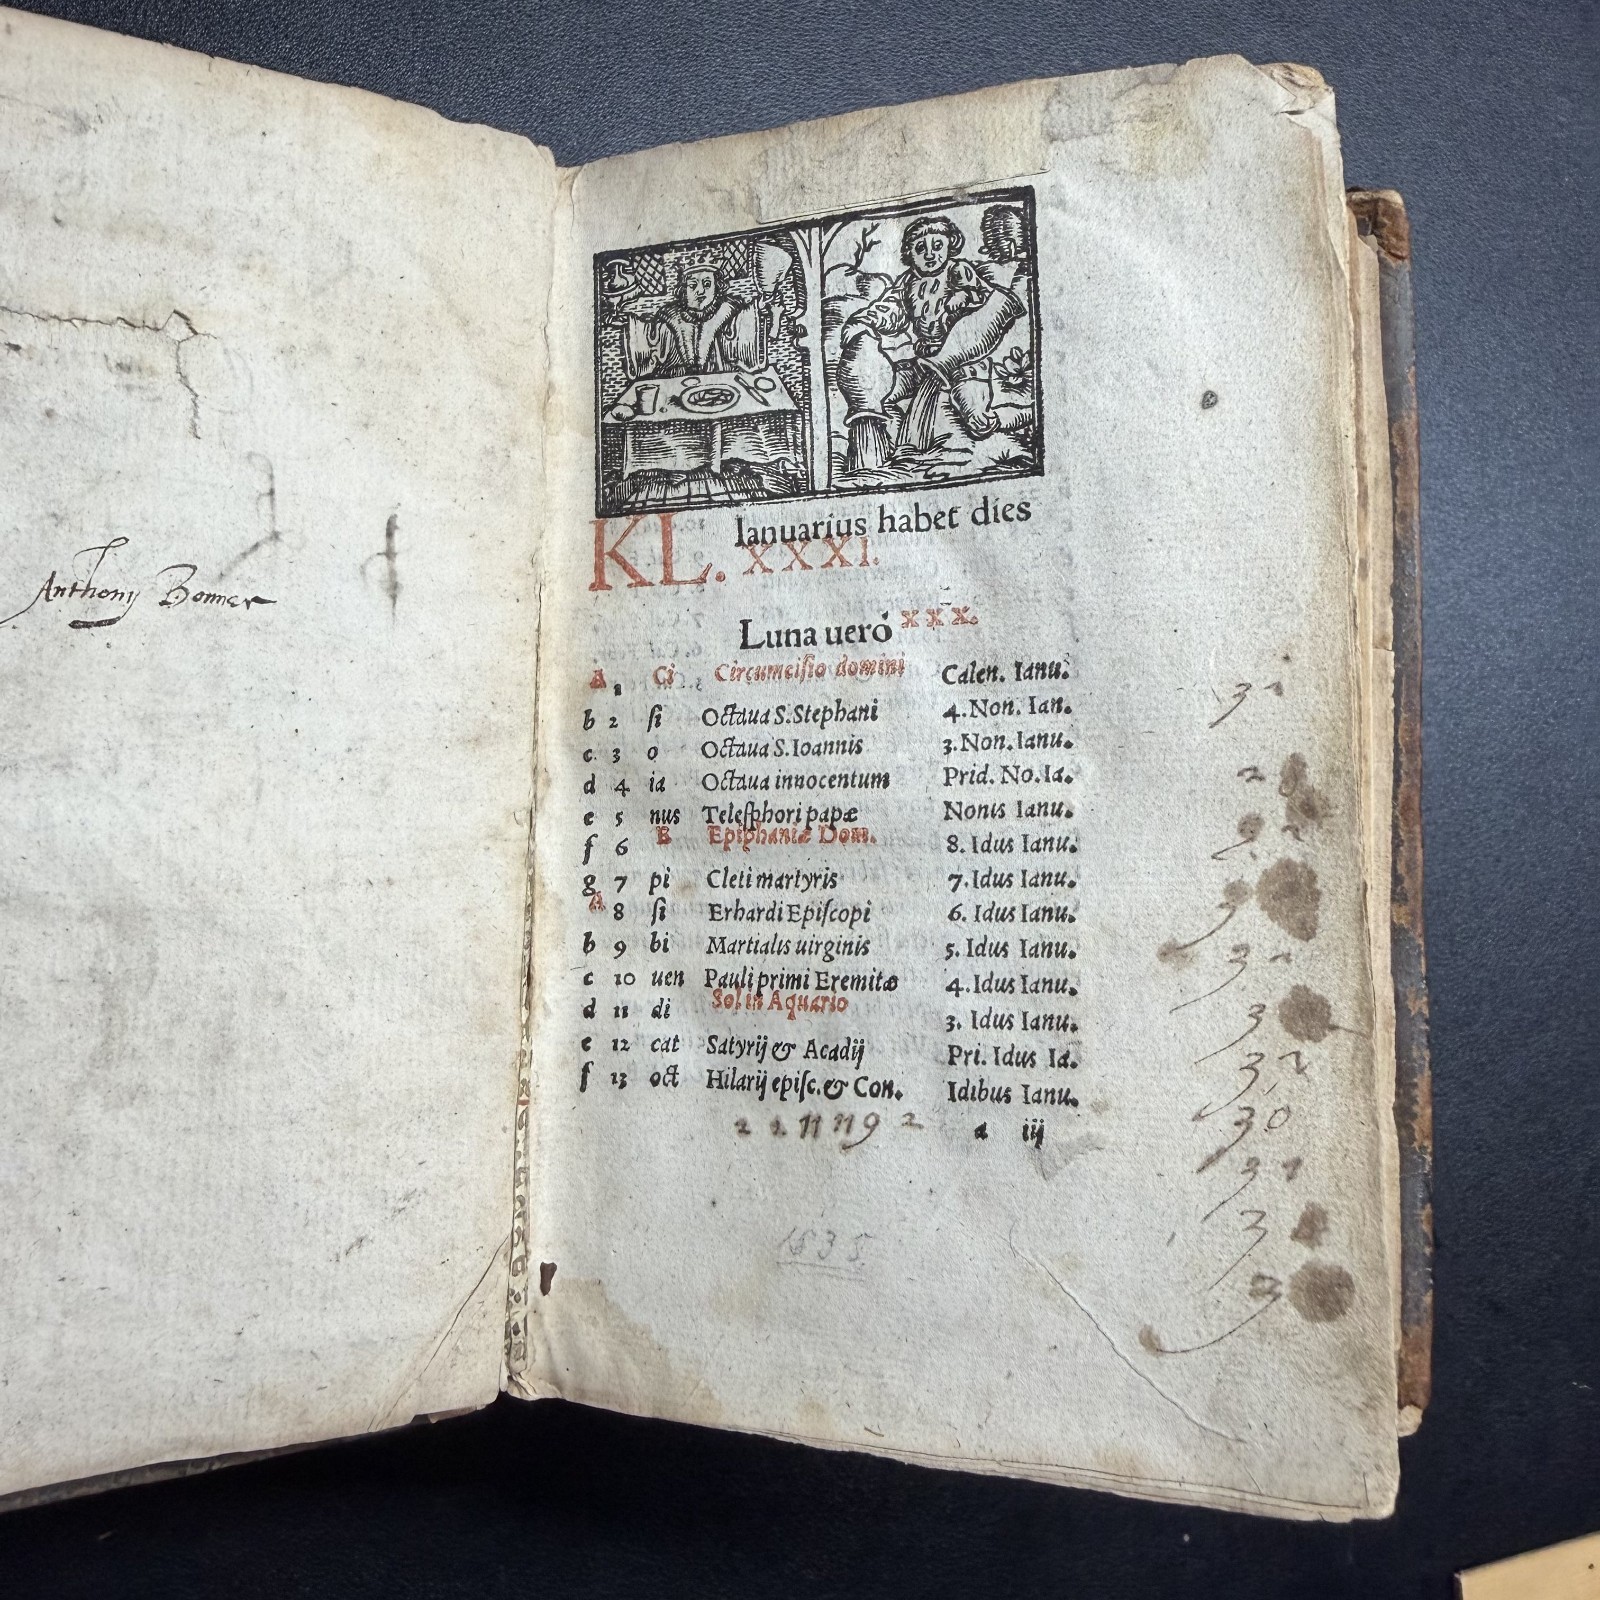 Anthony Bonner
Ianuarius habet dies
KL. XXXI.
Luna uerò xxx.
A 1 Ci Circumcisio domini Calen. Ianu.
b 2 si Octaua S. Stephani 4. Non. Ian.
c 3 o Octaua S. Ioannis 3. Non. Ianu.
d 4 ia Octaua innocentum Prid. No. Ia.
e 5 nus Telesphori papæ Nonis Ianu.
f 6 E Epiphaniæ Dom. 8. Idus Ianu.
g 7 pi Cleti martyris 7. Idus Ianu.
A 8 si Erhardi Episcopi 6. Idus Ianu.
b 9 bi Martialis uirginis 5. Idus Ianu.
c 10 uen Pauli primi Eremitæ 4. Idus Ianu.
d 11 di Sol in Aquario 3. Idus Ianu.
e 12 cat Satyrij & Acadij Pri. Idus Ia.
f 13 oct Hilarij episc. & Con. Idibus Ianu.
a iij
1635